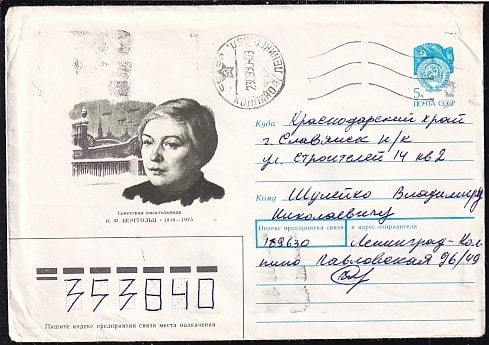 5к
ПОЧТА СССР
Куда Краснодарский край
г. Славянск н/к
ул. Строителей 14 кв 2
Кому Шулейко Владимиру
Николаевичу
Индекс предприятия связи и адрес отправителя
Ленинград-Кол-
пино Павловская 96/49
Советская писательница
О. Ф. БЕРГГОЛЬЦ • 1910—1975
353840
Пишите индекс предприятия связи места назначения